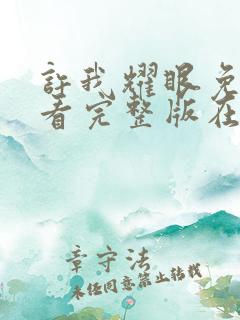 許我耀眼免
看完整版在
章守法
未经同意禁止转载